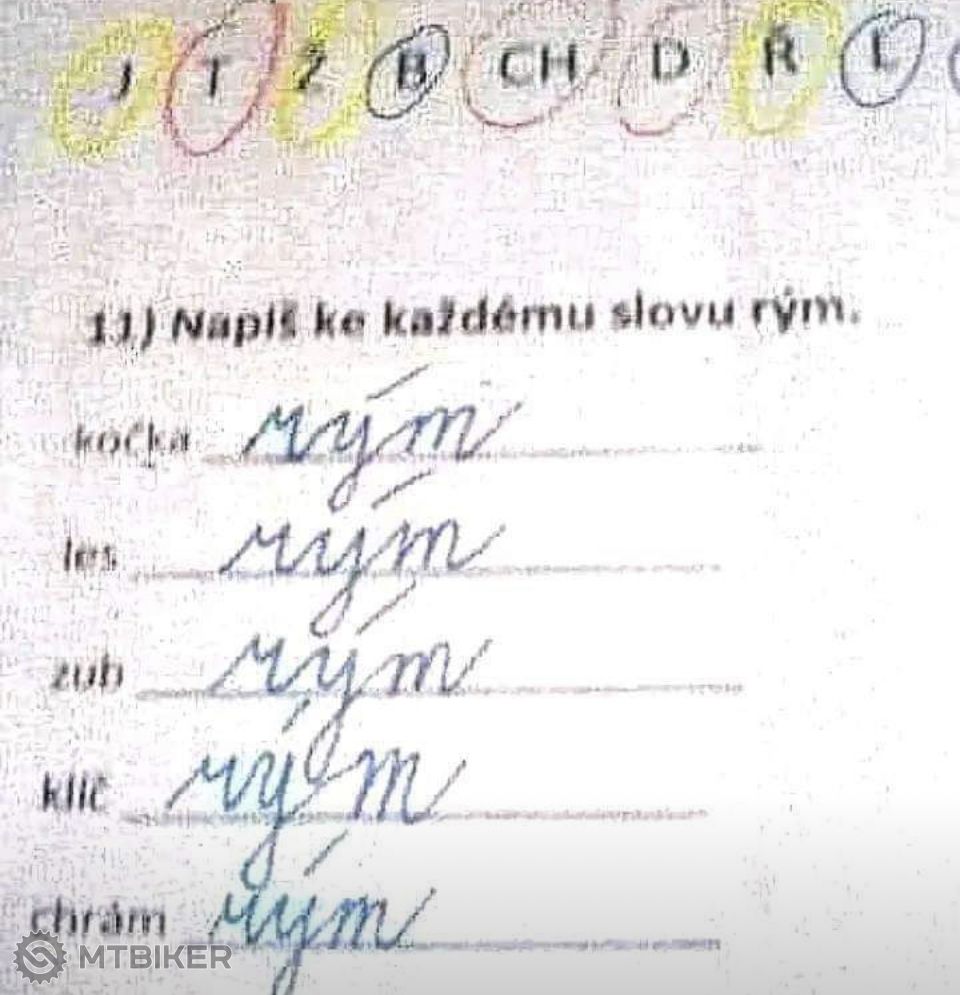 J T Ž B CH D Ř L
11) Napiš ke každému slovu rým.
kočka rým
les rým
zub rým
klíč rým
chrám rým
MTBIKER